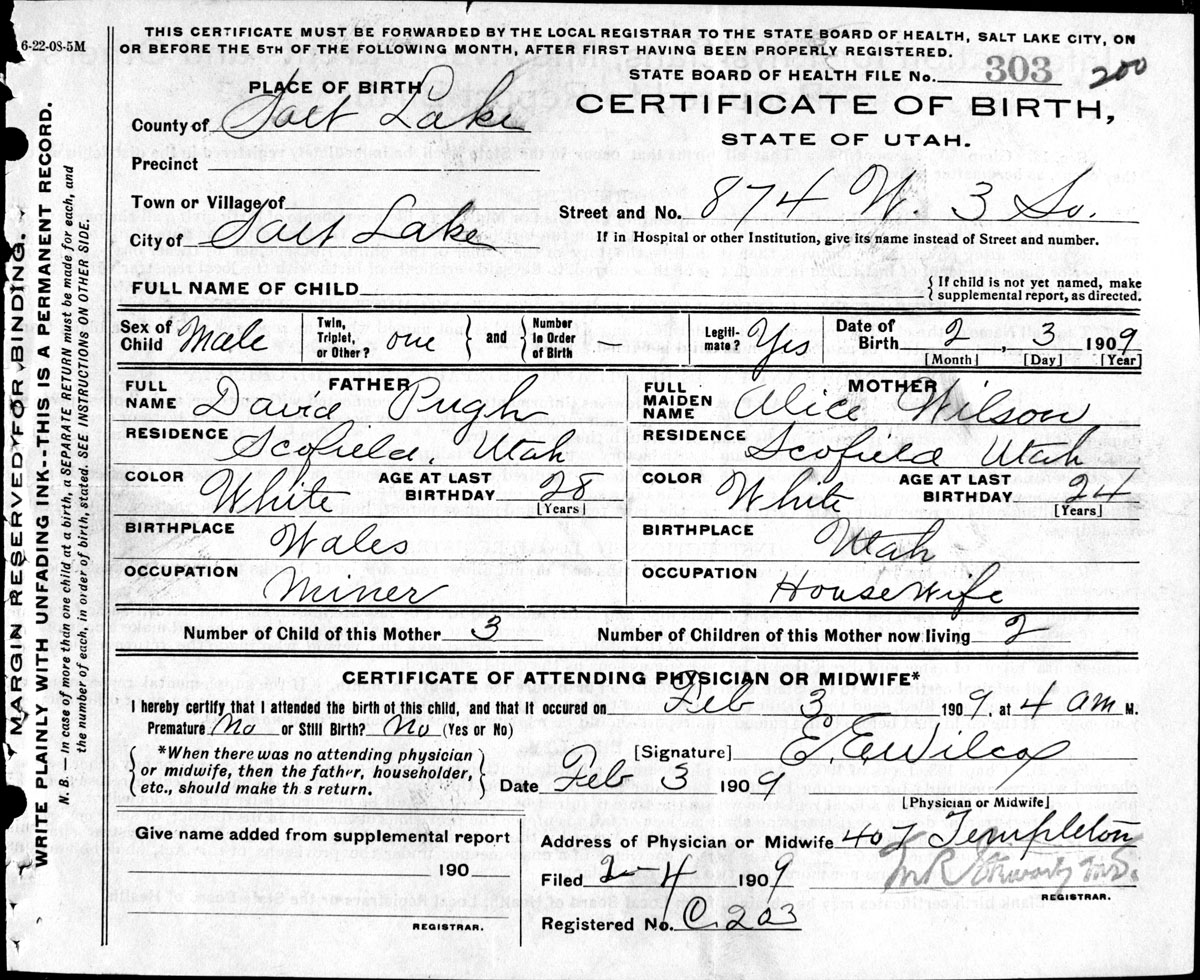 6-22-08-5M
THIS CERTIFICATE MUST BE FORWARDED BY THE LOCAL REGISTRAR TO THE STATE BOARD OF HEALTH, SALT LAKE CITY, ON
OR BEFORE THE 5TH OF THE FOLLOWING MONTH, AFTER FIRST HAVING BEEN PROPERLY REGISTERED.
STATE BOARD OF HEALTH FILE No. 303 200
PLACE OF BIRTH
CERTIFICATE OF BIRTH,
STATE OF UTAH.
County of Salt Lake
Precinct
Town or Village of
Street and No. 874 W. 3 So.
City of Salt Lake
If in Hospital or other Institution, give its name instead of Street and number.
FULL NAME OF CHILD
{ If child is not yet named, make
supplemental report, as directed.
Sex of Child Male
Twin, Triplet, or Other? one } and { Number In Order of Birth —
Legitimate? Yes
Date of Birth 2, 3 1909
[Month] [Day] [Year]
FATHER
FULL NAME David Pugh
RESIDENCE Scofield, Utah
COLOR White AGE AT LAST BIRTHDAY 28
[Years]
BIRTHPLACE Wales
OCCUPATION Miner
MOTHER
FULL MAIDEN NAME Alice Wilson
RESIDENCE Scofield Utah
COLOR White AGE AT LAST BIRTHDAY 24
[Years]
BIRTHPLACE Utah
OCCUPATION HouseWife
Number of Child of this Mother 3 Number of Children of this Mother now living 2
CERTIFICATE OF ATTENDING PHYSICIAN OR MIDWIFE*
I hereby certify that I attended the birth of this child, and that it occured on Feb 3 1909, at 4 am M.
Premature No or Still Birth? No (Yes or No)
{ *When there was no attending physician
or midwife, then the father, householder,
etc., should make th s return. }
[Signature] E. E. Wilcox
Date Feb 3 1909
[Physician or Midwife]
Give name added from supplemental report
190
REGISTRAR.
Address of Physician or Midwife 407 Templeton
Filed 2-4 1909
REGISTRAR.
Registered No. C. 203
MARGIN RESERVED FOR BINDING.
WRITE PLAINLY WITH UNFADING INK--THIS IS A PERMANENT RECORD.
N. B. — In case of more than one child at a birth, a SEPARATE RETURN must be made for each, and
the number of each, in order of birth, stated. SEE INSTRUCTIONS ON OTHER SIDE.